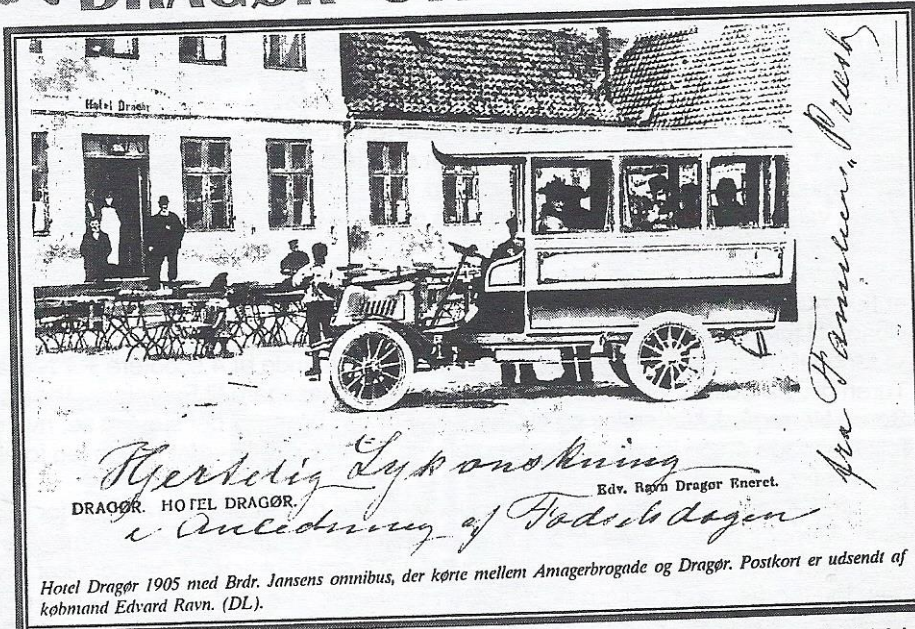 DRAGØR
Hotel Dragør
fra Familien
Hjertelig Lykønskning
DRAGØR. HOTEL DRAGØR.
Edv. Ravn Dragør Eneret.
i Anledning af Fødselsdagen
Hotel Dragør 1905 med Brdr. Jansens omnibus, der kørte mellem Amagerbrogade og Dragør. Postkort er udsendt af
købmand Edvard Ravn. (DL).